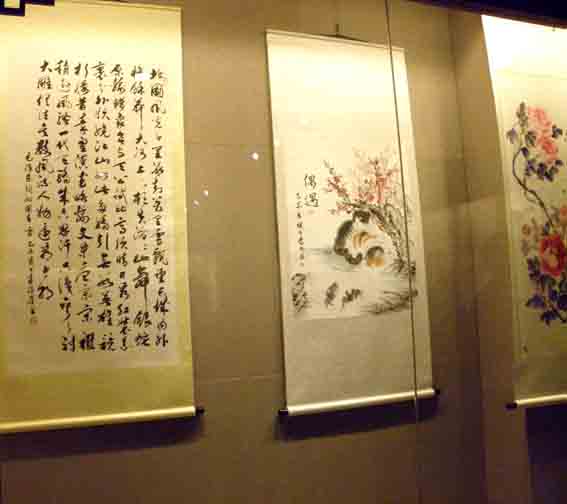 北國風光千里冰封萬里雪飄望長城内外
惟餘莽莽大河上下頓失滔滔山舞銀蛇
原馳蠟象欲與天公試比高須晴日看紅裝素
裹分外妖嬈江山如此多嬌引無數英雄競
折腰惜秦皇漢武略輸文采唐宗宋祖稍
遜風騷一代天驕成吉思汗只識彎弓射
大雕俱往矣數風流人物還看今朝
毛澤東詞沁園春雪
偶遇